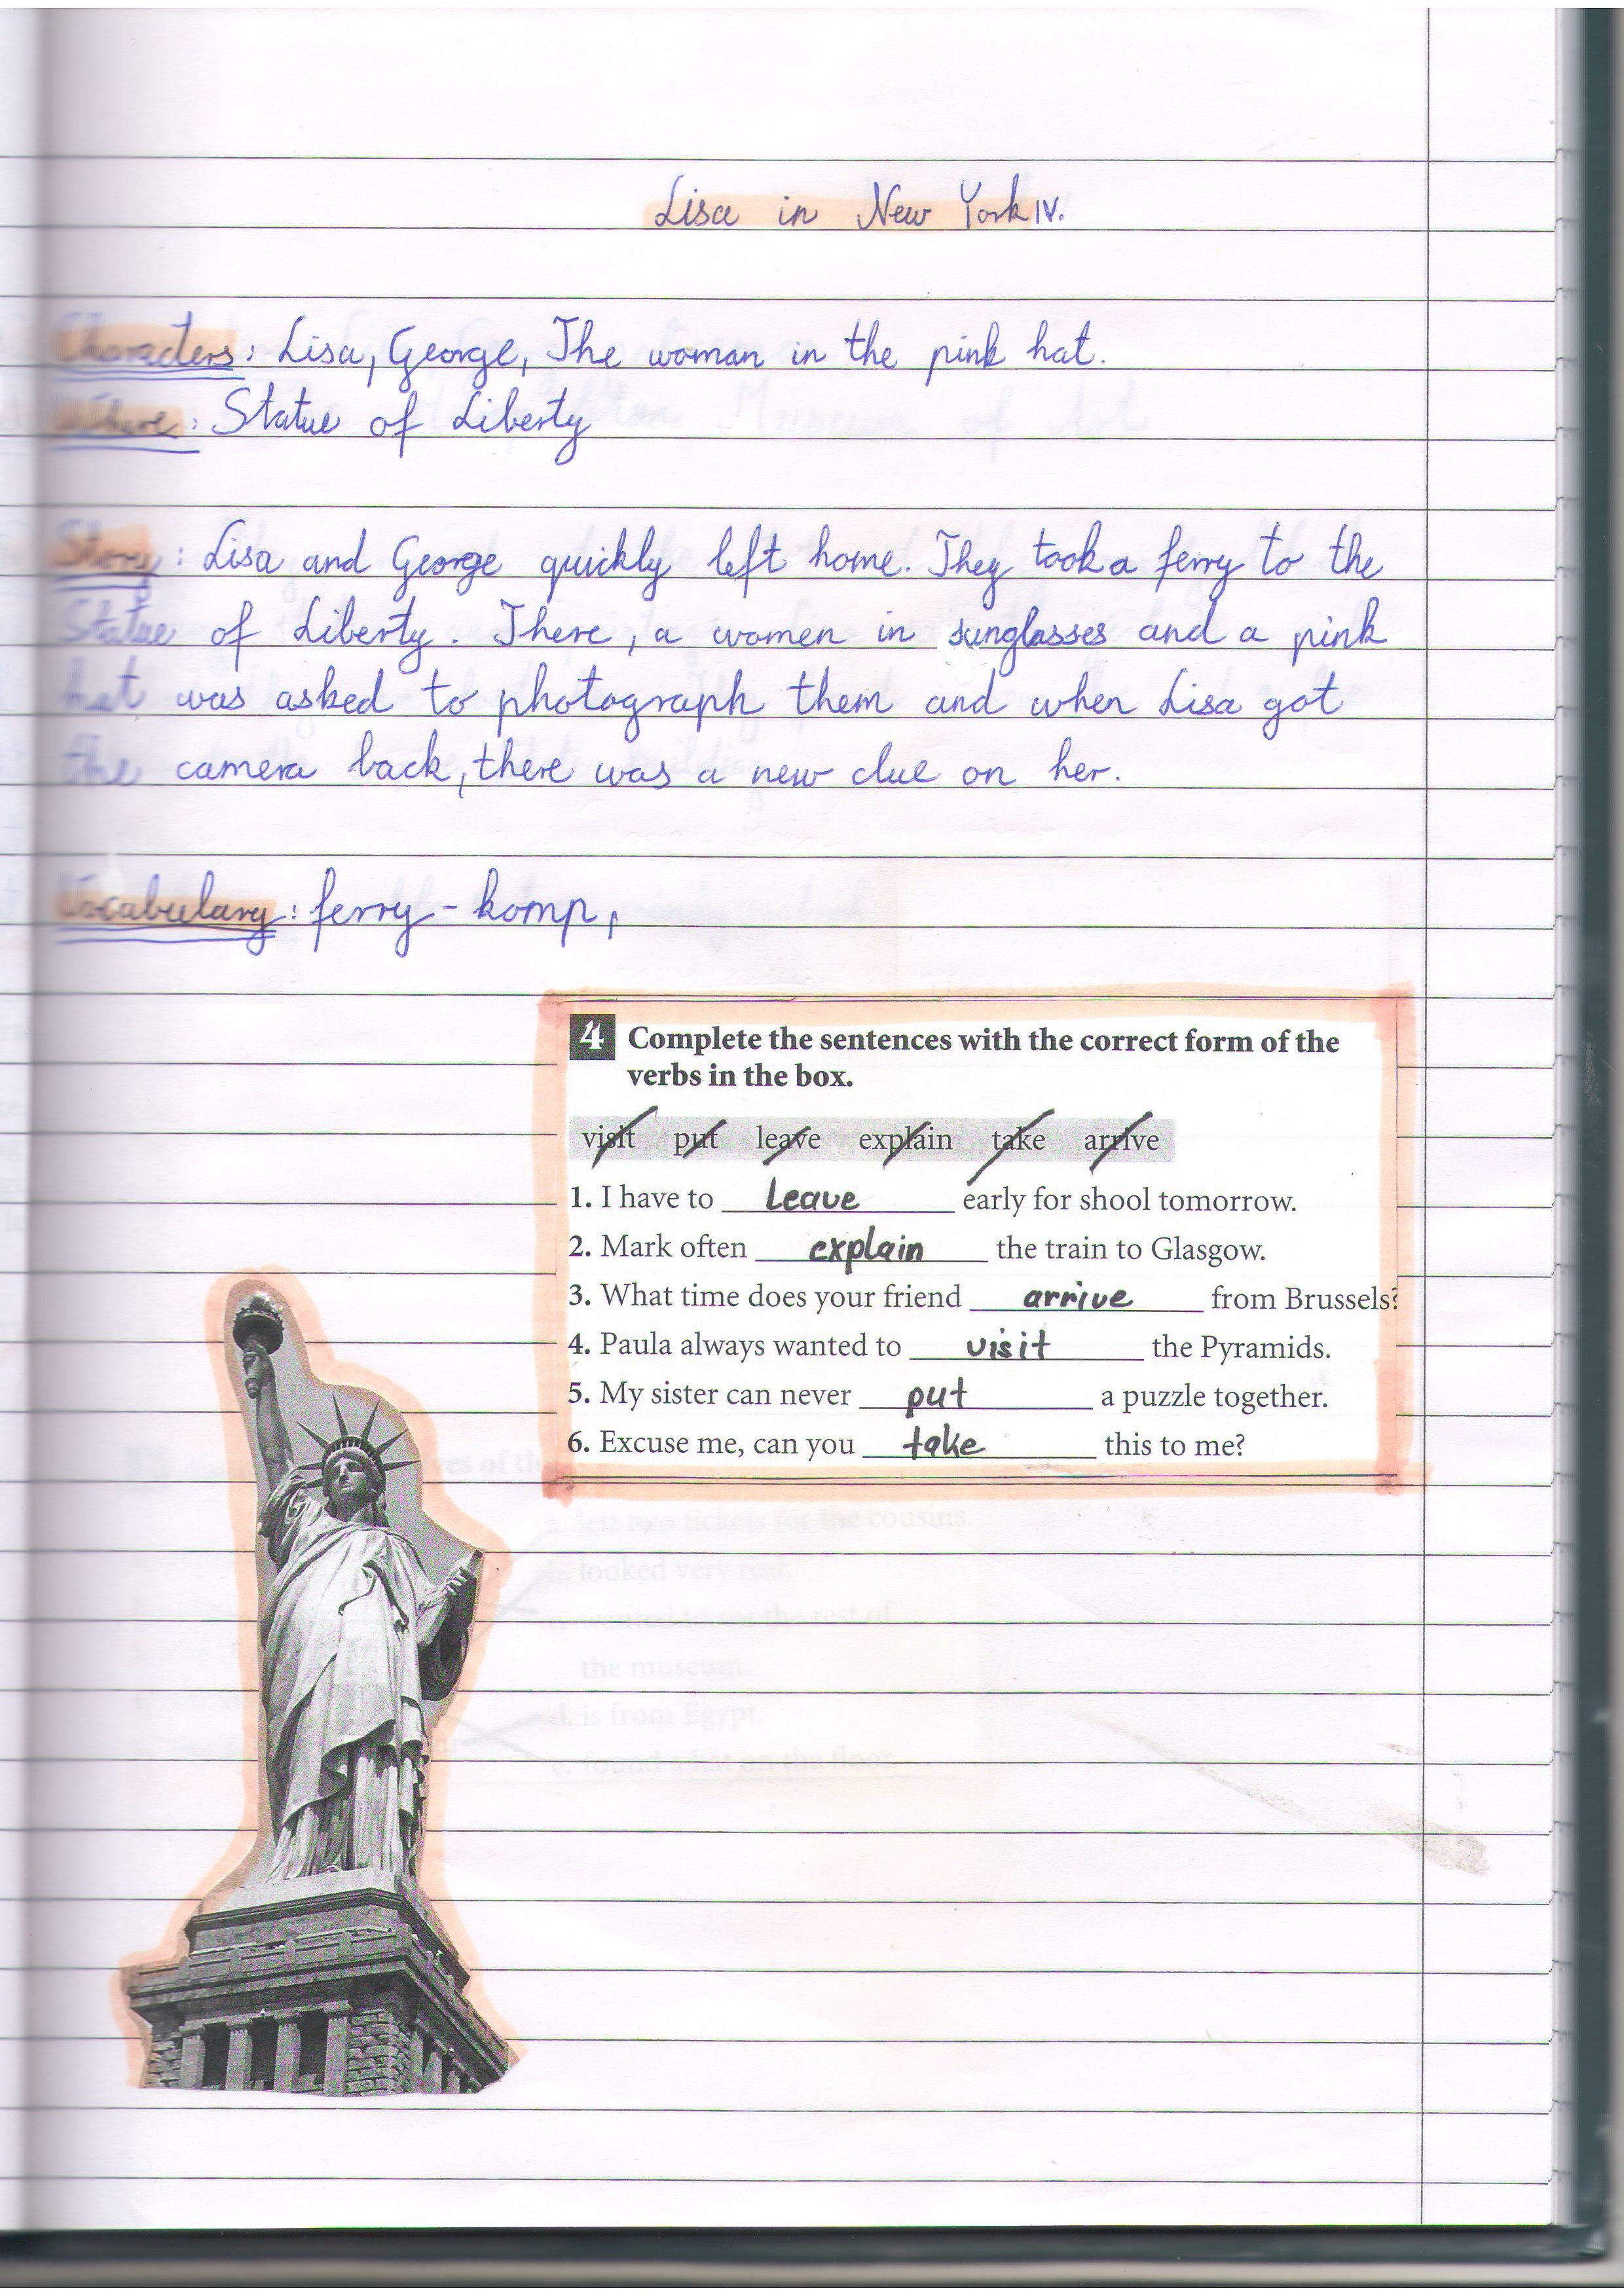 Lisa in New York IV.
Characters: Lisa, George, The woman in the pink hat.
Where: Statue of Liberty
Story: Lisa and George quickly left home. They took a ferry to the
Statue of Liberty. There, a women in sunglasses and a pink
hat was asked to photograph them and when Lisa got
the camera back, there was a new clue on her.
Vocabulary: ferry - komp,
4 Complete the sentences with the correct form of the
verbs in the box.
visit put leave explain take arrive
1. I have to leave early for shool tomorrow.
2. Mark often explain the train to Glasgow.
3. What time does your friend arrive from Brussels?
4. Paula always wanted to visit the Pyramids.
5. My sister can never put a puzzle together.
6. Excuse me, can you take this to me?
left two tickets for the cousins.
looked very real.
wanted to see the rest of
the museum.
d. is from Egypt.
e. found a hat on the floor.